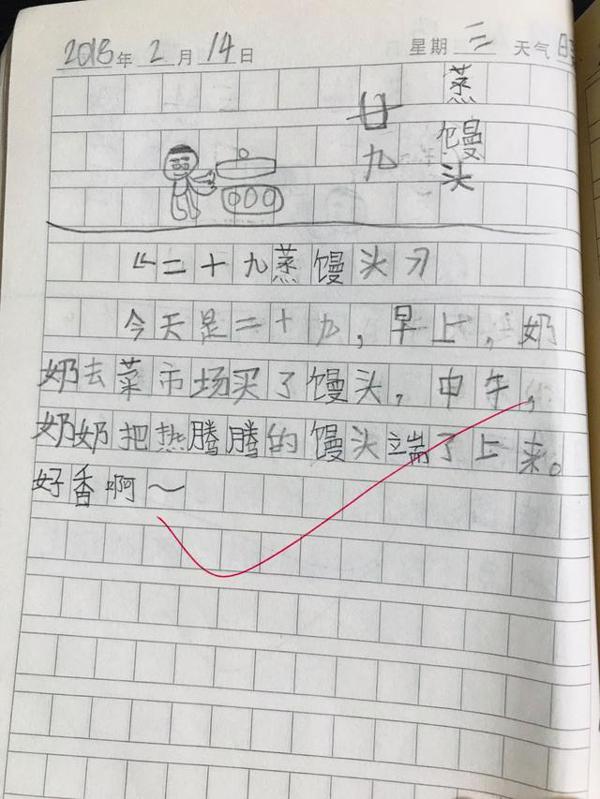 2018年2月14日 星期三 天气
蒸馒头
廿九
《二十九蒸馒头》
今天是二十九,早上,奶
奶去菜市场买了馒头,中午,
奶奶把热腾腾的馒头端了上来。
好香啊~